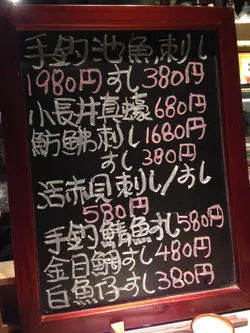 手釣池魚刺し
1980円 すし380円
小長井真蠔680円
魴鮄刺し1680円
すし380円
活赤貝刺し/すし
580円
手釣鯖魚すし580円
金目鯛すし480円
白魚仔すし380円